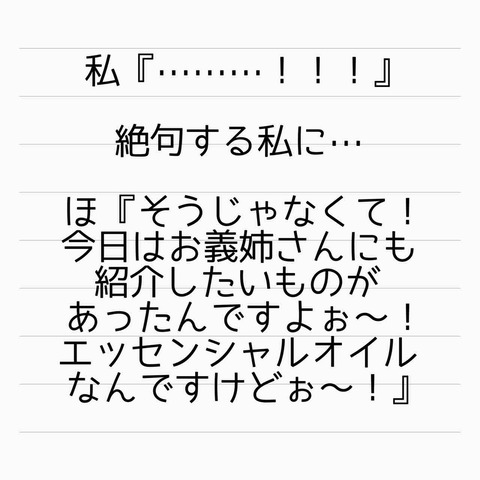 私『………！！！』
絶句する私に…
ほ『そうじゃなくて！
今日はお義姉さんにも
紹介したいものが
あったんですよぉ〜！
エッセンシャルオイル
なんですけどぉ〜！』